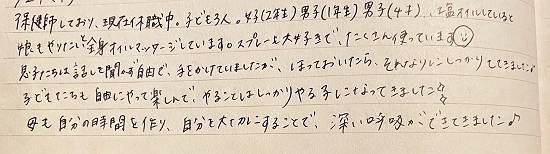 保健師しており、現在休職中。子ども3人。女子(2年生)男子(1年生)男子(4才)、塩オイルしていると
娘もやりたいと全身オイルマッサージしています。スプレーも大好きで、たくさん使っています
息子たちは話しを聞かず自由で、手をかけていましたが、ほっておいたら、それなりにしっかりしてきました♪
子どもたちも自由にやって楽しんで、やることはしっかりやる子になってきました
母も自分の時間を作り、自分を大切にすることで、深い呼吸ができてきました♪